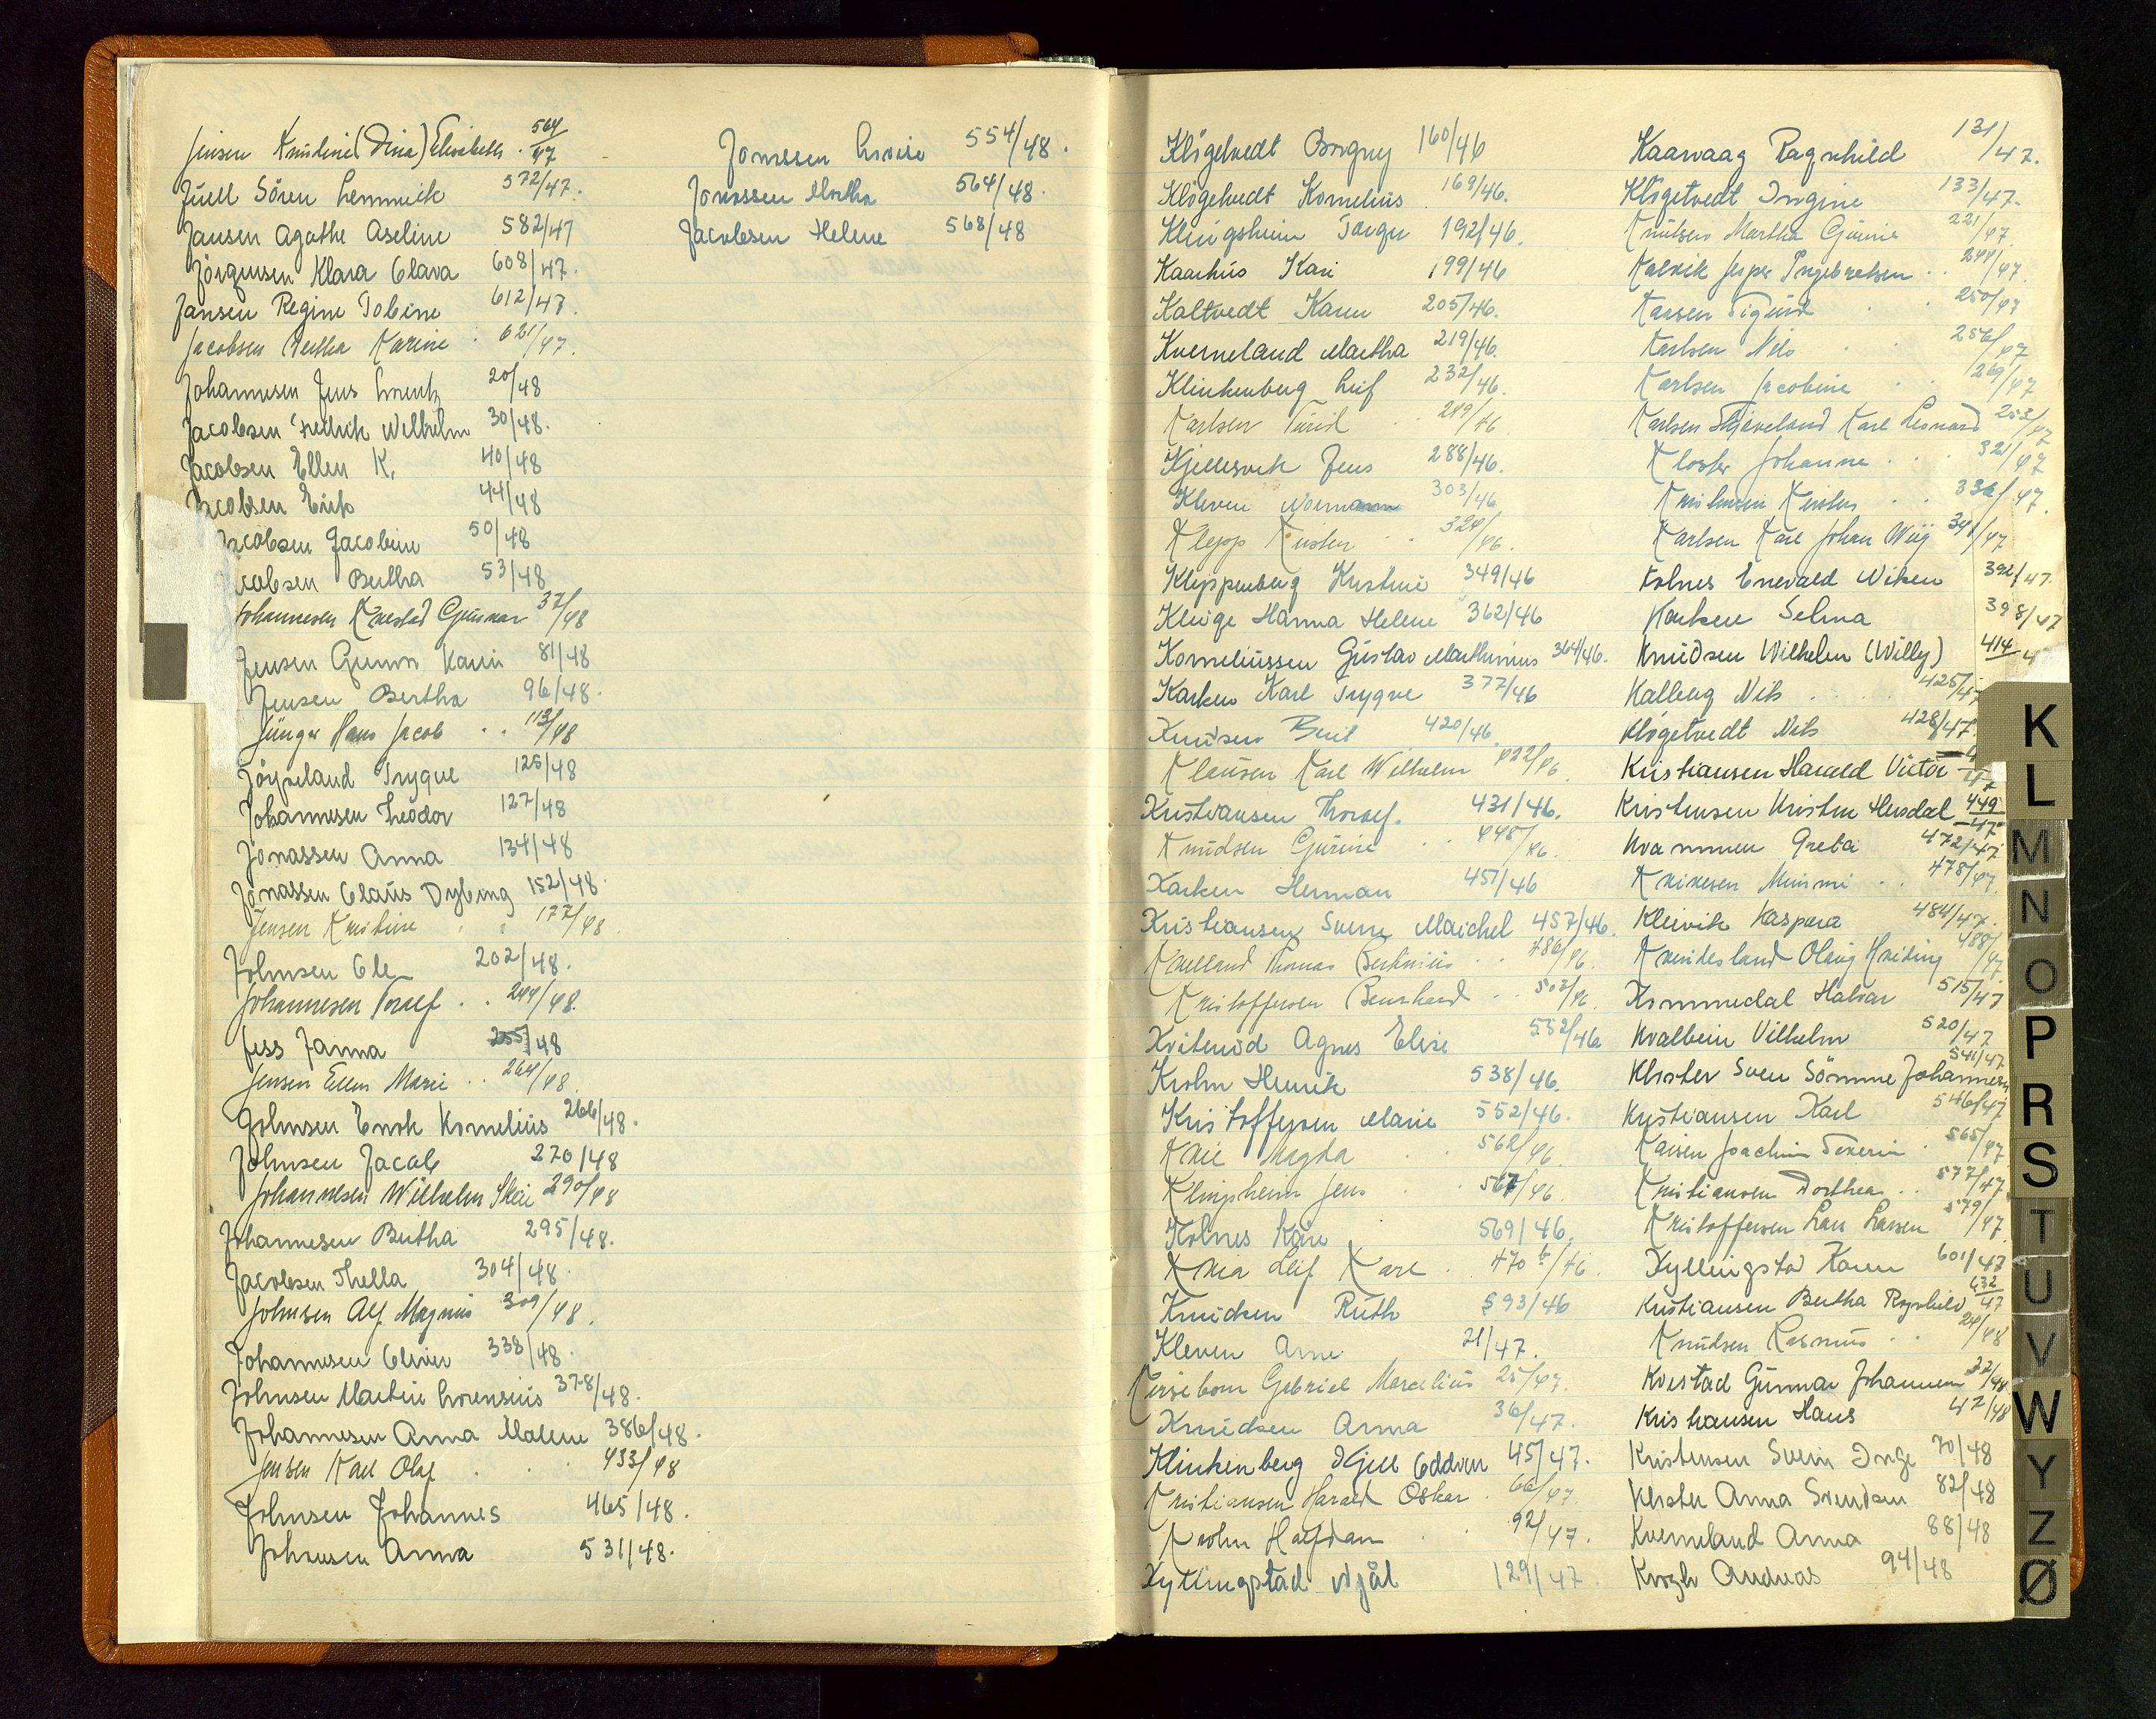 Jensen Knudine (Dina) Elisabeth 564/47
Juell Sören Lemmick 572/47.
Jansen Agathe Aseline 582/47
Jörgensen Klara Olava 608/47.
Jansen Regine Tobine 612/47.
Jacobsen Bertha Karine 621/47.
Johannesen Jens Lorentz 20/48
Jacobsen Fredrik Wilhelm 30/48.
Jacobsen Ellen K. 40/48
Jacobsen Erik 44/48
Jacobsen Jacobine 50/48
Jacobsen Bertha 53/48
Johannesen Kvestad Gunnar 37/48
Jensen Gunn Karin 81/48
Jensen Bertha 96/48.
Jünger Hans Jacob 113/48
Jöypeland Trygve 125/48
Johannesen Theodor 127/48
Jonassen Anna 134/48
Jonassen Claus Dybing 152/48.
Jensen Kristine 177/48.
Johnsen Ole 202/48.
Johannesen Toralf 244/48.
Jess Janna 255/48
Jensen Ellen Marie 264/48.
Johnsen Enok Kornelius 266/48.
Johnsen Jacob 270/48
Johannesen Wilhelm Skeie 290/48
Johannesen Bertha 295/48.
Jacobsen Thella 304/48.
Johnsen Alf Magnus 309/48.
Johannesen Oliver 338/48.
Johnsen Martin Lorensius 378/48.
Johannesen Anna Malene 386/48.
Jensen Karl Olaf 433/48
Johnsen Johannes 465/48.
Johnsen Anna 531/48.
Jonassen Lovise 554/48.
Jonassen Martha 564/48.
Jacobsen Helene 568/48
Klögetvedt Borgny 160/46
Klögetvedt Kornelius 169/46.
Klingsheim Torger 192/46.
Kaarhus Kari 199/46
Kaltvedt Karen 205/46.
Kverneland Martha 219/46.
Klinkenberg Leif 232/46.
Karlsen Turid 249/46
Kjellesvik Jens 288/46.
Kleven Normann 303/46
Klepp Kirsten 324/46.
Kleppenberg Kristine 349/46
Kluge Hanna Helene 362/46
Korneliussen Gustav Marthinius 364/46.
Karlsen Karl Trygve 377/46
Knudsen Berit 420/46
Klausen Karl Wilhelm 422/46.
Kristiansen Thoralf. 431/46.
Knudsen Gurine 448/46.
Karlsen Herman 451/46
Kristiansen Sverre Maichel 457/46.
Kielland Thomas Bertinius 486/46.
Kristoffersen Bernhard 503/46
Kvitenod Agnes Elise 532/46
Krohn Henrik 538/46.
Kristoffersen Marie 552/46.
Knie Magda 562/46
Klingsheim Jens 567/46.
Kolnes Kåre 569/46.
Knea Leif Kåre 470 b/46.
Knudsen Ruth 593/46
Kleven Arne 21/47.
Kirsebom Gabriel Marcelius 25/47.
Knudsen Anna 36/47.
Klinkenberg Kjell Oddvin 45/47.
Kristiansen Harald Oskar 66/47.
Krohn Halfdan 92/47.
Kyllingstad Njål 129/47.
Kaarvaag Ragnhild 131/47.
Klögetvedt Ingine 133/47.
Knutsen Martha Gurine 221/47.
Kalvik Jesper Ingebretsen 244/47.
Kaasen Sigurd 250/47
Karlsen Nils 256/47
Karlsen Jacobine 269/47
Karlsen Skjæveland Karl Leonard 253/47
Kloster Johanne 321/47
Kristensen Kirsten 336/47.
Karlsen Karl Johan Wiig 341/47
Kolnes Enevald Niken 392/47.
Karlsen Selma 398/47
Knudsen Wilhelm (Willy) 414
Kalberg Nils 425/47
Klögetvedt Nils 428/47.
Kristiansen Harald Victor
Kristensen Kristen Hersdal 449/47
Kvammen Greta 472/47
Knivesen Mimmi 478/47
Kleivik Kaspara 484/47.
Knudesland Olaug Hviding 488/47
Kommedal Halvar 515/47
Kvalbein Vilhelm 520/47
Kloster Sven Sömme Johannesen 541/47
Kristiansen Karl 546/47
Kaisen Joachim Severin 565/47
Kristiansen Dorthea 577/47.
Kristoffersen Lars Larsen 579/47.
Kyllingstad Karen 601/47
Kristiansen Bertha Ragnhild 632/47
Knudsen Rasmus 24/48
Kvestad Gunnar Johannesen 37/48
Kristiansen Hans 47/48
Kristensen Svein Inge 70/48
Kloster Anna Svendsen 82/48
Kverneland Anna 88/48
Krogh Andreas 94/48
K
L
M
N
O
P
R
S
T
U
V
W
Y
Z
Ø